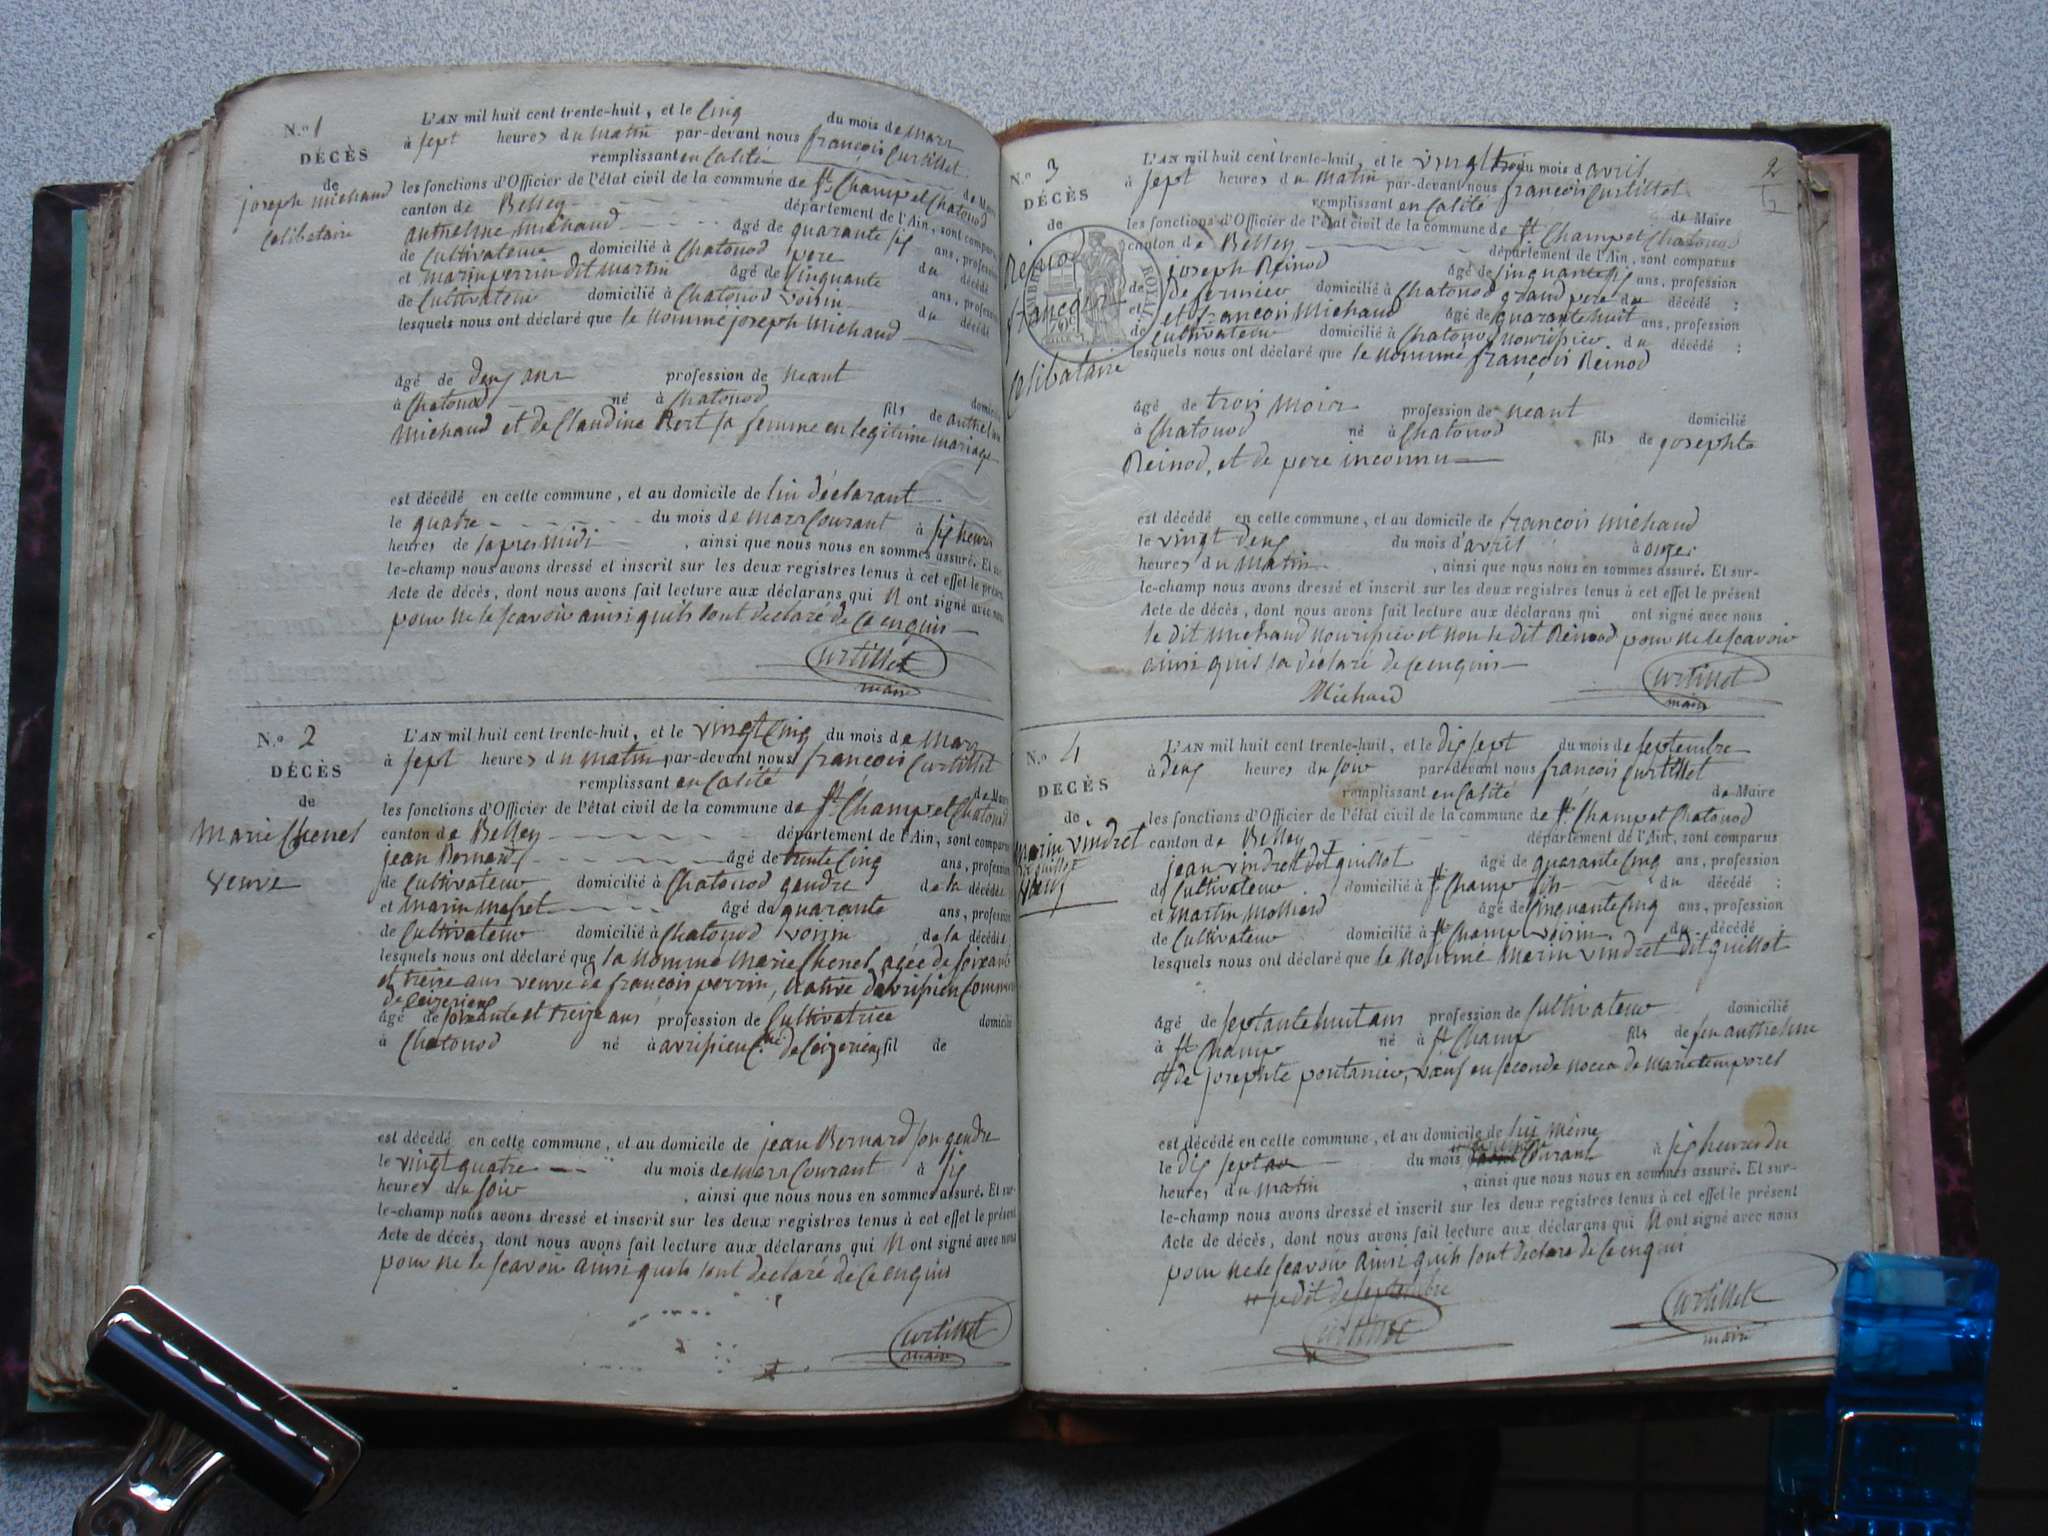 N.º 1
DÉCÈS
de
joseph michaud
Celibataire
L'AN mil huit cent trente-huit, et le Cinq du mois de mars
à sept heures du matin par-devant nous françois Curtillet
remplissant en Calité de Maire
les fonctions d'Officier de l'état civil de la commune de St Champ et Chatonod
canton de Belley département de l'Ain, sont comparus
anthelme michaud âgé de quarante six ans, profession
de Cultivateur domicilié à Chatonod pere du décédé
et marin perrin dit martin âgé de Cinquante ans, profession
de Cultivateur domicilié à Chatonod voisin du décédé
lesquels nous ont déclaré que le nommé joseph michaud
âgé de deux ans profession de neant domicilié
à Chatonod né à Chatonod fils de anthelme
michaud et de Claudine Rert sa femme en legitime mariage
est décédé en cette commune, et au domicile de lui déclarant
le quatre du mois de mars Courant à six heures
heures de lapres midi, ainsi que nous nous en sommes assuré. Et sur-
le-champ nous avons dressé et inscrit sur les deux registres tenus à cet effet le présent
Acte de décès, dont nous avons fait lecture aux déclarans qui N ont signé avec nous
pour ne le scavoir ainsi quils lont declaré de Ce enquis
Curtillet
maire
N.º 2
DÉCÈS
de
Marie Chenel
Veuve
L'AN mil huit cent trente-huit, et le vingt Cinq du mois de mars
à sept heures du matin par-devant nous françois Curtillet
remplissant en Calité de Maire
les fonctions d'Officier de l'état civil de la commune de St Champ et Chatonod
canton de Belley département de l'Ain, sont comparus
jean Bernard âgé de trente Cinq ans, profession
de Cultivateur domicilié à Chatonod gendre de la décédée
et marin masset âgé de quarante ans, profession
de Cultivateur domicilié à Chatonod voisin de la décédée
lesquels nous ont déclaré que la nommé marie Chenel, agée de soixante
et treize ans veuve de françois perrin, native davrisieu Commune
de Ceizerieu
âgé de soixante et treize ans profession de Cultivatrice domicilié
à Chatonod né à avrisieu C.ne de Ceizerieu fil de
est décédé en cette commune, et au domicile de jean Bernard son gendre
le vingt quatre du mois de mars Courant à six
heures du soir, ainsi que nous nous en sommes assuré. Et sur-
le-champ nous avons dressé et inscrit sur les deux registres tenus à cet effet le présent
Acte de décès, dont nous avons fait lecture aux déclarans qui N ont signé avec nous
pour ne le scavoir ainsi quils lont declaré de Ce enquis
Curtillet
maire
2
N.º 3
DÉCÈS
de
Reinod
françois
Celibataire
TIMBRE ROYAL
L'AN mil huit cent trente-huit, et le vingt trois du mois d avril
à sept heures du matin par-devant nous françois Curtillet
remplissant en Calité de Maire
les fonctions d'Officier de l'état civil de la commune de St Champ et Chatonod
canton de Belley département de l'Ain, sont comparus
joseph Reinod âgé de Cinquante six ans, profession
de de fermier domicilié à Chatonod grand pere du décédé :
et et françois Michaud âgé de quarante huit ans, profession
de Cultivateur domicilié à Chatonod nourisier du décédé :
lesquels nous ont déclaré que le nommé françois Reinod
âgé de trois mois profession de neant domicilié
à Chatonod né à Chatonod fils de josephte
Reinod, et de pere inconnu
est décédé en cette commune, et au domicile de francois Michaud
le vingt deux du mois d'avril à onze
heures du matin, ainsi que nous nous en sommes assuré. Et sur-
le-champ nous avons dressé et inscrit sur les deux registres tenus à cet effet le présent
Acte de décès, dont nous avons fait lecture aux déclarans qui ont signé avec nous
le dit michaud nourisier et non le dit Reinod pour ne le scavoir
ainsi quis la déclaré de Ce enquis
Michaud
Curtillet
maire
N.º 4
DÉCÈS
de
marin vindret
dit guillot
Veuf
L'AN mil huit cent trente-huit, et le dix sept du mois de septembre
à deux heures du soir par-devant nous françois Curtillet
remplissant en Calité de Maire
les fonctions d'Officier de l'état civil de la commune de St Champ et Chatonod
canton de Belley département de l'Ain, sont comparus
jean vindret dit guillot âgé de quarante Cinq ans, profession
de Cultivateur domicilié à St Champ fils du décédé :
et martin molliard âgé de Cinquante Cinq ans, profession
de Cultivateur domicilié à St Champ voisin du décédé :
lesquels nous ont déclaré que le nommé marin vindret dit guillot
âgé de septante huit ans profession de Cultivateur domicilié
à St Champ né à St Champ fils de feu anthelme
et de josephte pontanier, veuf en seconde noces de marie temporel
est décédé en cette commune, et au domicile de lui même
le dix sept du mois Courant à six heures du
heures du matin, ainsi que nous nous en sommes assuré. Et sur-
le-champ nous avons dressé et inscrit sur les deux registres tenus à cet effet le présent
Acte de décès, dont nous avons fait lecture aux déclarans qui N ont signé avec nous
pour ne le scavoir ainsi quils lont declaré de Ce enquis
je dit de septembre
Curtillet
Curtillet
maire